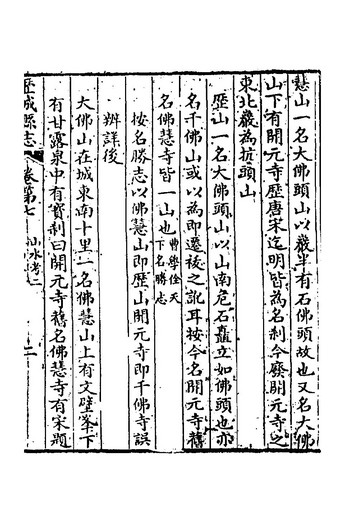 慧山一名大佛頭山以巖半有石佛頭故也又名大佛
山下有開元寺歷唐宋迄明皆為名刹今廢開元寺之
東北巖為抗頭山
歷山一名大佛頭山以山南危石矗立如佛頭也亦
名千佛山或以為即遷祓之訛耳按今名開元寺舊
名佛慧寺皆一山也曹學佺天下名勝志
按名勝志以佛慧山即歷山開元寺即千佛寺誤
辨詳後
大佛山在城東南十里一名佛慧山上有文壁峯下
有甘露泉中有寳刹曰開元寺舊名佛慧寺有宋題
歷城縣志 卷第七 山水考二 二